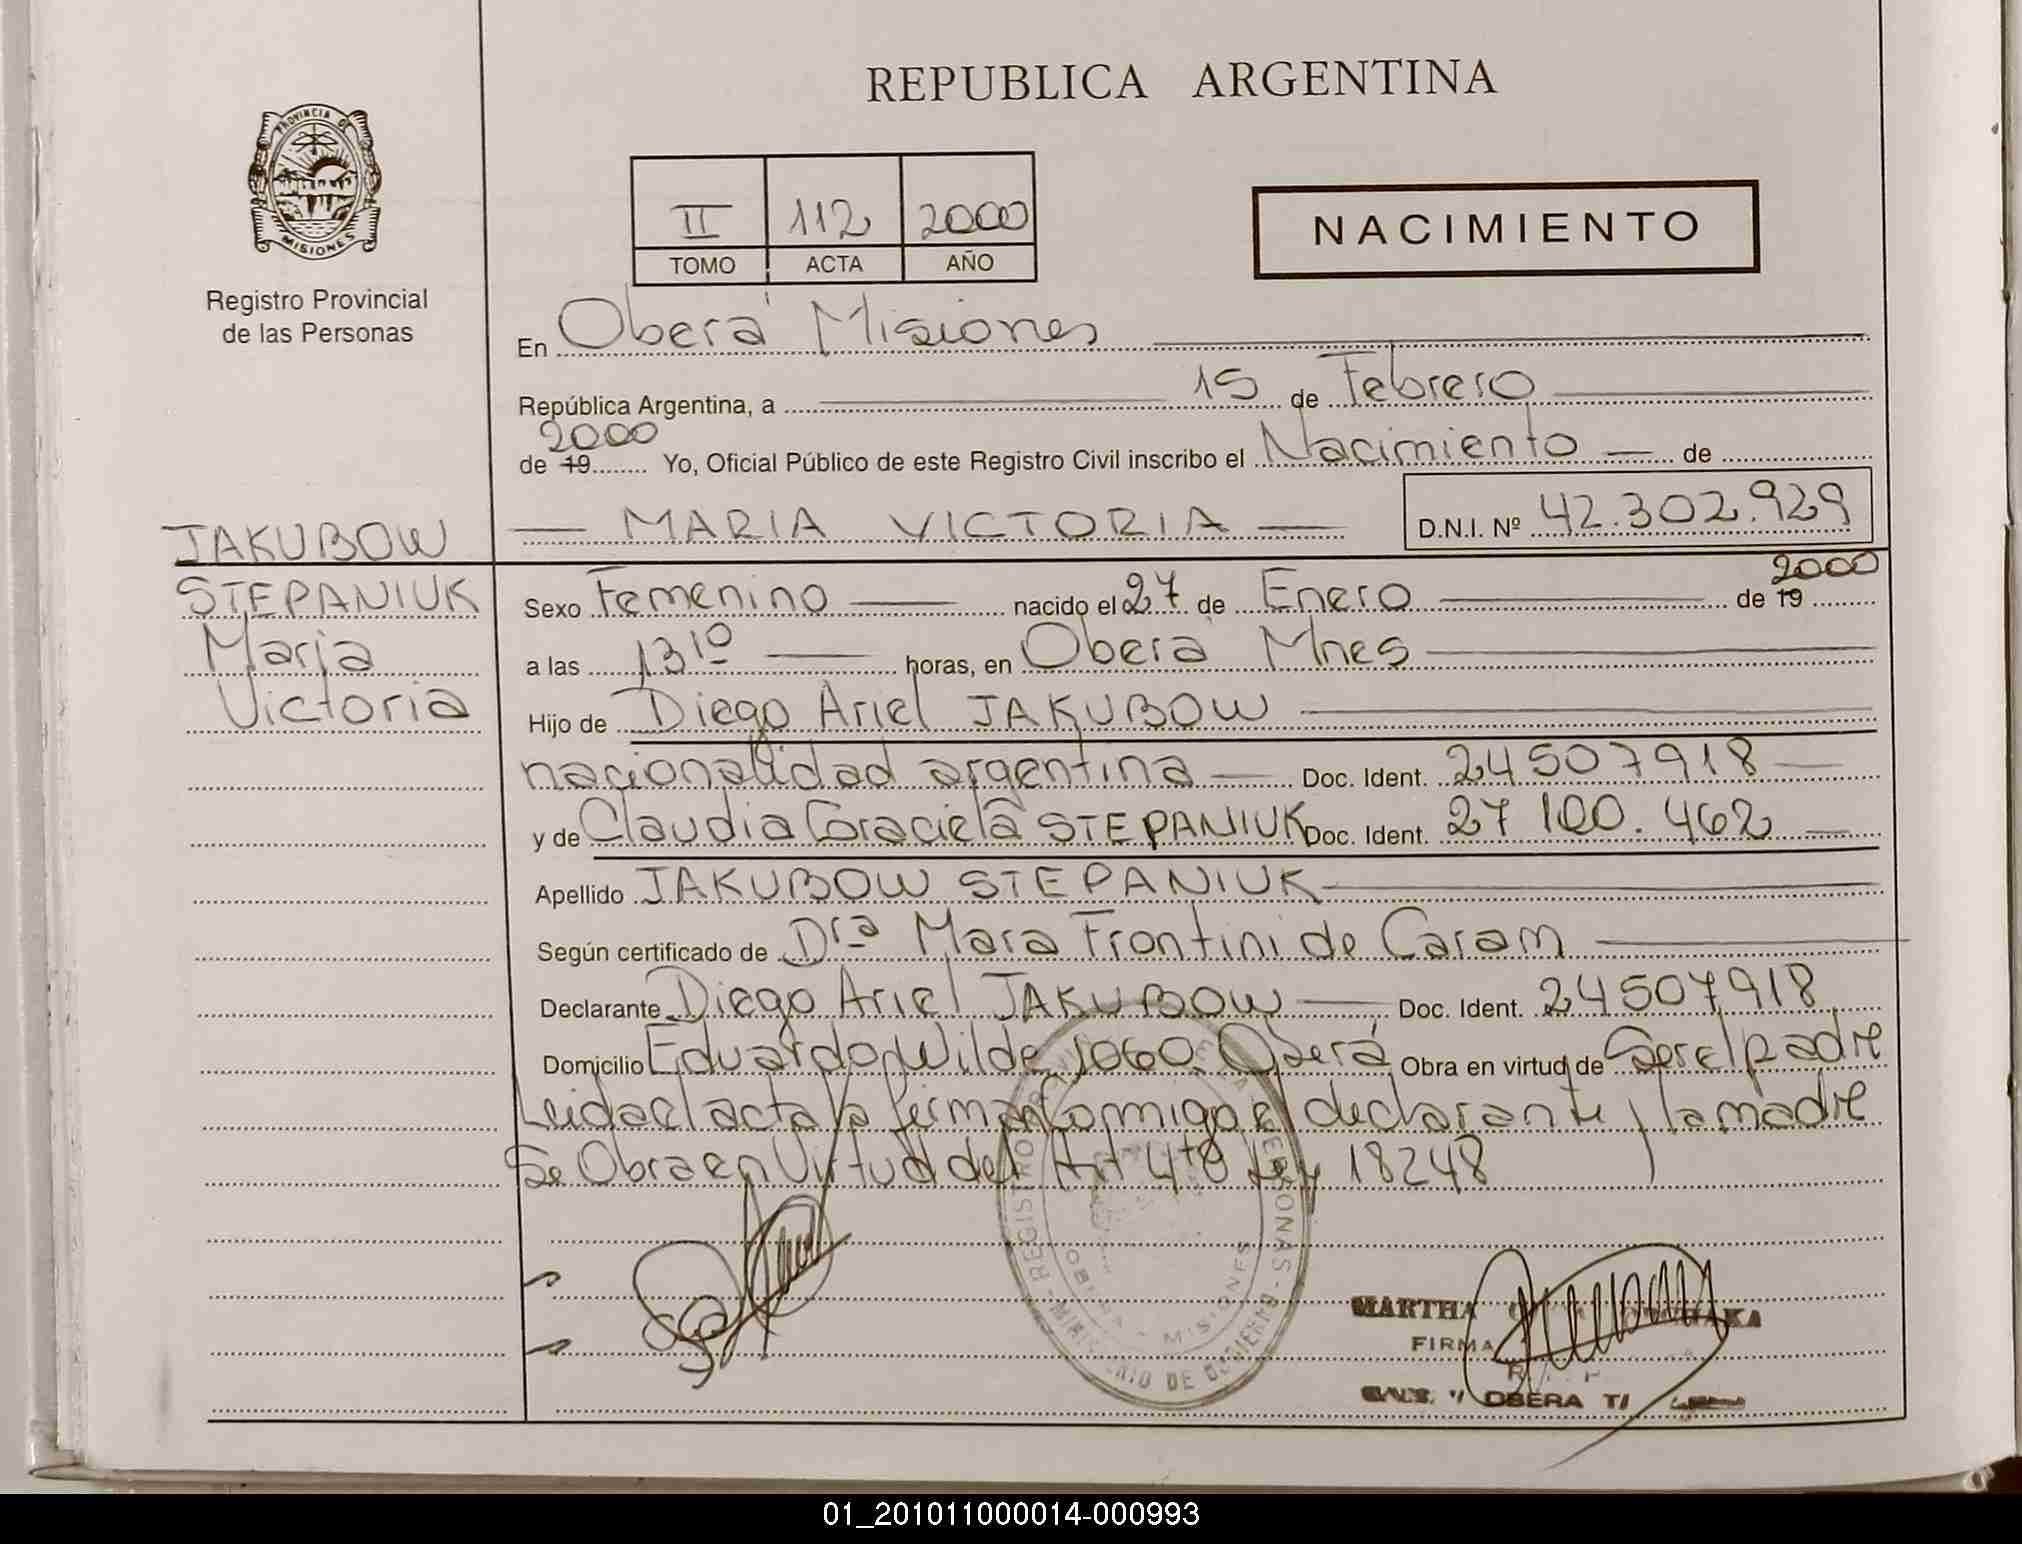 REPUBLICA ARGENTINA
PROVINCIA DE
MISIONES
Registro Provincial
de las Personas
II 112 2000
TOMO ACTA AÑO
NACIMIENTO
En Oberá Misiones
República Argentina, a 15 de Febrero
2000
de 19 Yo, Oficial Público de este Registro Civil inscribo el Nacimiento de
MARIA VICTORIA D.N.I. Nº 42.302.929
JAKUBOW
STEPANIUK
Maria
Victoria
2000
Sexo Femenino nacido el 27 de Enero de 19
a las 13 10 horas, en Oberá Mnes
Hijo de Diego Ariel JAKUBOW
nacionalidad argentina Doc. Ident. 24507918
y de Claudia Graciela STEPANIUK Doc. Ident. 27 100.462
Apellido JAKUBOW STEPANIUK
Según certificado de Dra Mara Frontini de Caram
Declarante Diego Ariel JAKUBOW Doc. Ident. 24507918
Domicilio Eduardo Wilde 1060. Oberá Obra en virtud de Ser el padre
Leida el acta la firman Conmigo el declarante y la madre
Se Obra en Virtud del Art 4to Ley 18248
REGISTRO PERSONAS
MINISTERIO DE GOBIERNO
OBERA - MISIONES
MARTHA
FIRMA
OBERA
01_201011000014-000993